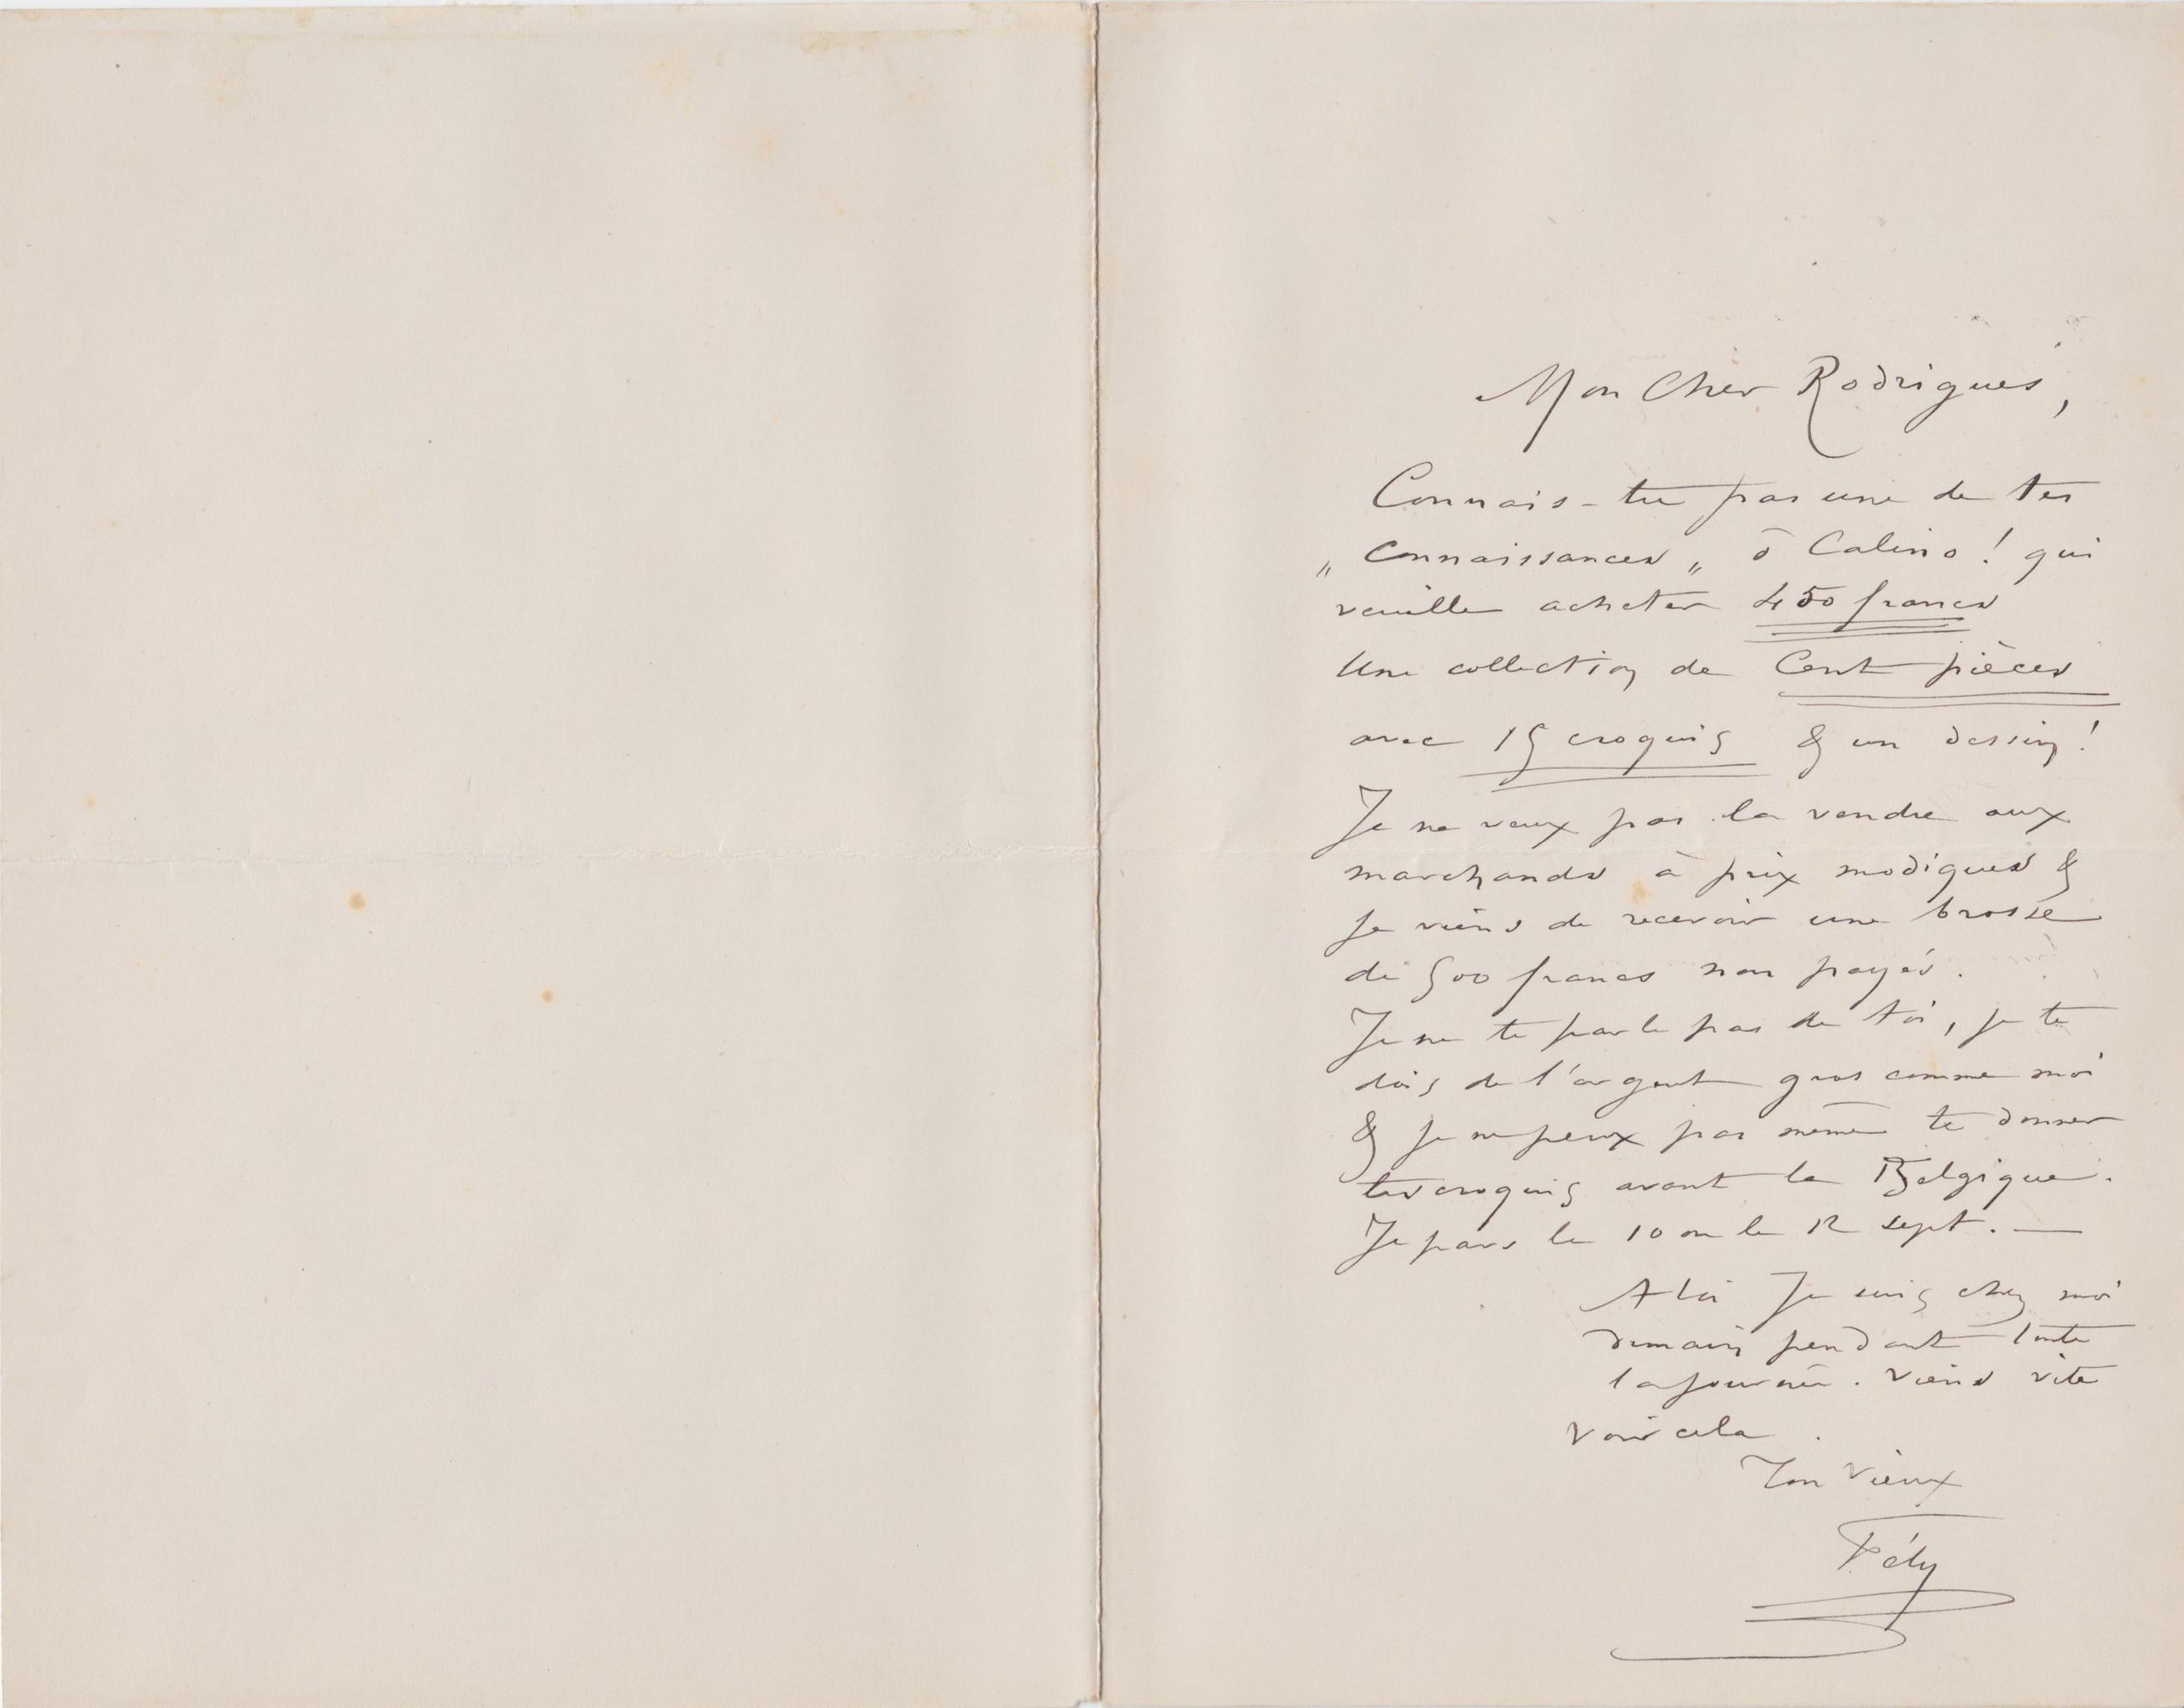 Mon Cher Rodrigues,
Connais-tu pas une de tes
„ Connaissances „ ô Calino ! qui
veuille acheter 450 francs
Une collection de Cent pièces
avec 15 croquis & un dessin !
Je ne veux pas la vendre aux
marchands à prix modiques &
je viens de recevoir une brosse
de 500 francs non payés.
Je ne te parle pas de toi, je te
dois de l'argent gros comme moi
& je ne peux pas même te donner
tes croquis avant la Belgique.
Je pars le 10 ou le 12 sept. —
A toi Je suis chez moi
demain pendant toute
la journée. Viens vite
voir cela.
Ton vieux
Fély